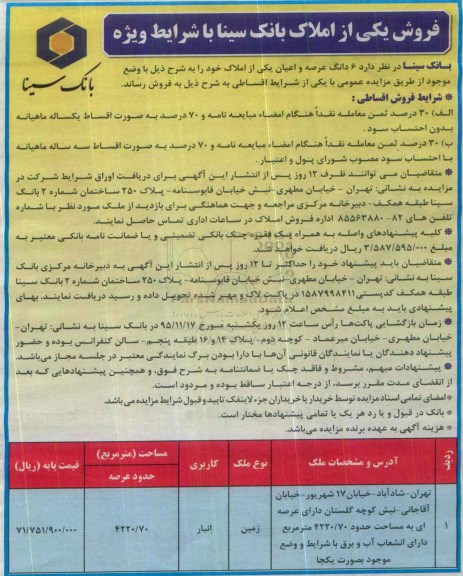 فروش یکی از املاک بانک سینا با شرایط ویژه
بانک سینا
بانک سینا در نظر دارد ۶ دانگ عرصه و اعیان یکی از املاک خود را به شرح ذیل با وضع
موجود از طریق مزایده عمومی با یکی از شرایط اقساطی به شرح ذیل به فروش رساند.
* شرایط فروش اقساطی :
الف) ۳۰ درصد ثمن معامله نقداً هنگام امضاء مبایعه نامه و ۷۰ درصد به صورت اقساط یکساله ماهیانه
بدون احتساب سود.
ب) ۳۰ درصد ثمن معامله نقداً هنگام امضاء مبایعه نامه و ۷۰ درصد به صورت اقساط سه ساله ماهیانه
با احتساب سود مصوب شورای پول و اعتبار.
* متقاضیان می توانند ظرف ۱۲ روز پس از انتشار این آگهی برای دریافت اوراق شرایط شرکت در
مزایده به نشانی: تهران - خیابان مطهری-نبش خیابان قابوسنامه- پلاک ۲۵۰ ساختمان شماره ۲ بانک
سینا طبقه همکف- دبیرخانه مرکزی مراجعه و جهت هماهنگی برای بازدید از ملک مورد نظر با شماره
تلفن های ۸۲-۸۵۵۶۳۸۸۰ اداره فروش املاک در ساعات اداری تماس حاصل نمایند.
* کلیه پیشنهادهای واصله به همراه یک فقره چک بانکی تضمینی و یا ضمانت نامه بانکی معتبر به
مبلغ ۳/۵۸۷/۵۹۵/۰۰۰ ریال دریافت خواهد شد.
* متقاضیان باید پیشنهاد خود را حداکثر تا ۱۲ روز پس از انتشار این آگهی به دبیرخانه مرکزی بانک
سینا به نشانی: تهران - خیابان مطهری-نبش خیابان قابوسنامه- پلاک ۲۵۰ ساختمان شماره ۲ بانک سینا
طبقه همکف کدپستی ۱۵۸۷۹۹۸۴۱۱ در پاکت لاک و مهر شده تحویل داده و رسید دریافت نمایند. بهای
پیشنهادی باید به مبلغ مشخص اعلام شود.
* زمان بازگشایی پاکت‌ها رأس ساعت ۱۴ روز یکشنبه مورخ ۹۵/۱۱/۱۷ در بانک سینا به نشانی: تهران-
خیابان مطهری- خیابان میرعماد- کوچه دوم- پلاک ۱۴ و ۱۶ طبقه پنجم- سالن کنفرانس بوده و حضور
پیشنهاد دهندگان یا نمایندگان قانونی آن‌ها با دارا بودن برگ نمایندگی معتبر در جلسه مجاز می‌باشد.
* پیشنهادات مبهم، مشروط و فاقد چک یا ضمانتنامه به شرح فوق، و همچنین پیشنهادهایی که بعد
از انقضای مدت مقرر برسد، از درجه اعتبار ساقط بوده و مردود است.
* امضای تمامی اسناد مزایده توسط خریدار یا خریداران جزء لاینفک تایید و قبول شرایط مزایده می باشد.
* بانک در قبول و یا رد هر یک یا تمامی پیشنهادها مختار است.
* هزینه آگهی به عهده برنده مزایده می‌باشد.
ردیف آدرس و مشخصات ملک نوع ملک کاربری مساحت (مترمربع) حدود عرصه قیمت پایه (ریال)
۱ تهران-شادآباد-خیابان ۱۷ شهریور-خیابان
آقاجانی-نبش کوچه گلستان دارای عرصه
ای به مساحت حدود ۴۲۲۰/۷۰ مترمربع
دارای انشعاب آب و برق با شرایط و وضع
موجود بصورت یکجا
زمین انبار ۴۲۲۰/۷۰ ۷۱/۷۵۱/۹۰۰/۰۰۰